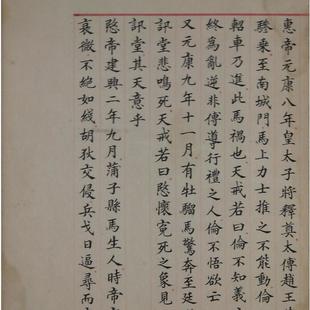 惠帝元康八年皇太子將釋奠太傅趙王
驂乘至南城門馬止力士推之不能動倫
軺車乃進此馬禍也天戒若曰倫不知義
終爲亂逆非傅導行禮之人倫不悟
又元康九年十一月有牡騮馬驚奔至廷
訊堂悲鳴死天戒若曰愍懷寃死之象見
訊堂其天意乎
愍帝建興二年九月蒲子縣馬生人時帝
衰微不絕如綫胡狄交侵兵戈日逼尋而